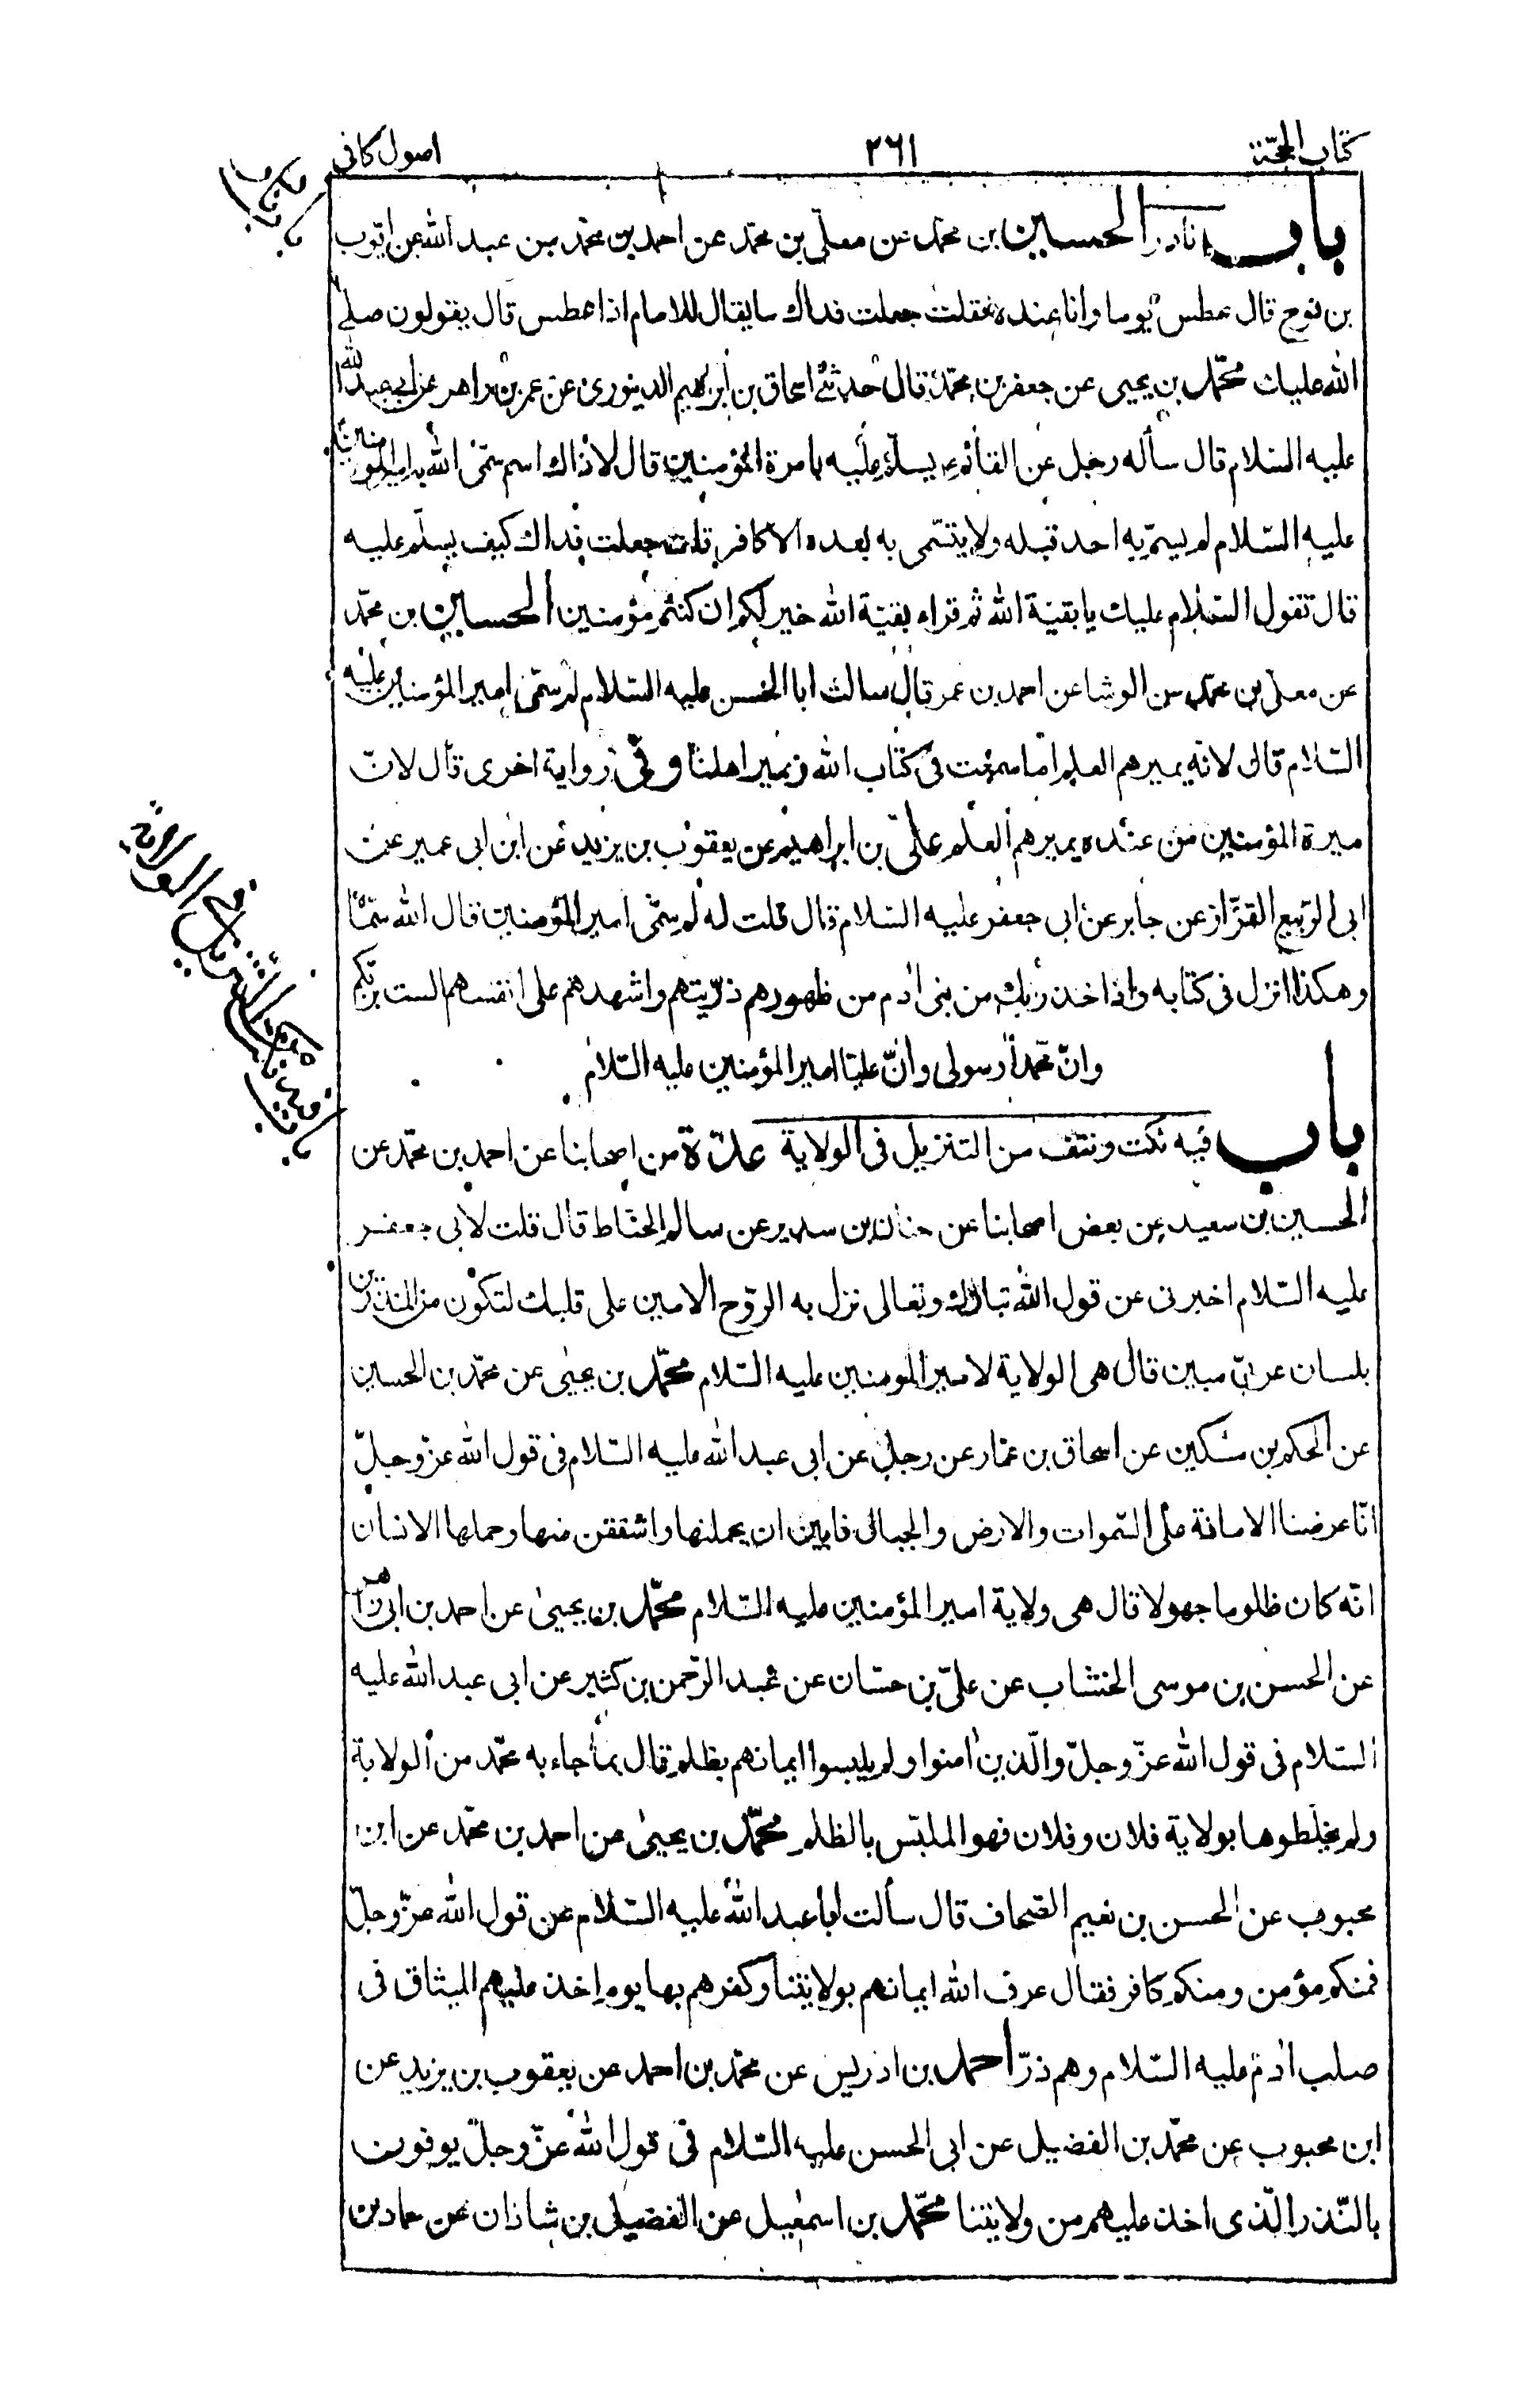 كتاب الحجّة
٢٦١
اصول كافى
باب نادر
باب نادر الحسين بن محمّد عن معلّى بن محمّد عن احمد بن محمّد بن عبد الله عن ايّوب
بن نوح قال عطس يوما وانا عنده فقلت جعلت فداك ما يقال للامام اذا عطس قال يقولون صلّى
الله عليك محمّد بن يحيى عن جعفر بن محمّد قال حدثنى اسحاق بن ابرهيم الدينورى عن عمر بن زاهر عن ابى عبد الله
عليه السّلام قال سأله رجل عن القائم يسلّم عليه بامرة المؤمنين قال لا ذاك اسم سمّى الله به امير المؤمنين
عليه السّلام لم يسمّ به احد قبله ولا يتسمّى به بعده الا كافر قلت جعلت فداك كيف يسلّم عليه
قال تقول السّلام عليك يا بقيّة الله ثم قراء بقيّة الله خير لكم ان كنتم مؤمنين الحسين بن محمّد
عن معلّى بن محمّد عن الوشا عن احمد بن عمر قال سالت ابا الحسن عليه السّلام لم سمّى امير المؤمنين عليه
السّلام قال لانه يميرهم العلم اما سمعت فى كتاب الله ونمير اهلنا وفى رواية اخرى قال لانّ
ميرة المؤمنين من عنده يميرهم العلم علىّ بن ابراهيم عن يعقوب بن يزيد عن ابن ابى عمير عن
ابى الرّبيع القزّاز عن جابر عن ابى جعفر عليه السّلام قال قلت له لم سمّى امير المؤمنين قال الله سمّاه
وهكذا انزل فى كتابه واذ اخذ ربك من بنى ادم من ظهورهم ذرّيتهم واشهدهم على انفسهم الست بربّكم
وانّ محمّداً رسولى وانّ عليّا امير المؤمنين عليه السّلام
باب فيه نكت ونتف من التنزيل فى الولاية
باب فيه نكت ونتف من التنزيل فى الولاية عدّة من اصحابنا عن احمد بن محمّد عن
الحسين بن سعيد عن بعض اصحابنا عن حنان بن سدير عن سالم الحنّاط قال قلت لابى جعفر
عليه السّلام اخبرنى عن قول الله تبارك وتعالى نزل به الرّوح الامين على قلبك لتكون من المنذرين
بلسان عربىّ مبين قال هى الولاية لامير المومنين عليه السّلام محمّد بن يحيى عن محمّد بن الحسين
عن الحكم بن مسكين عن اسحاق بن عمّار عن رجل عن ابى عبد الله عليه السّلام فى قول الله عزّ وجلّ
انّا عرضنا الامانة على السّموات والارض والجبال فابين ان يحملنها واشفقن منها وحملها الانسان
انّه كان ظلوما جهولا قال هى ولاية امير المؤمنين عليه السّلام محمّد بن يحيى عن احمد بن ابى زاهر
عن الحسن بن موسى الخشّاب عن علىّ بن حسّان عن عبد الرّحمن بن كثير عن ابى عبد الله عليه
السّلام فى قول الله عزّ وجلّ والّذين امنوا ولم يلبسوا ايمانهم بظلم قال بما جاء به محمّد من الولاية
ولم يخلطوها بولاية فلان وفلان فهو الملبّس بالظلم محمّد بن يحيى عن احمد بن محمّد عن ابن
محبوب عن الحسن بن نعيم الصّحاف قال سألت ابا عبد الله عليه السّلام عن قول الله عزّ وجلّ
فمنكم مؤمن ومنكم كافر فقال عرف الله ايمانهم بولايتنا وكفرهم بها يوم اخذ عليهم الميثاق فى
صلب ادم عليه السّلام وهم ذرّ احمد بن ادريس عن محمّد بن احمد عن يعقوب بن يزيد عن
ابن محبوب عن محمّد بن الفضيل عن ابى الحسن عليه السّلام فى قول الله عزّ وجلّ يوفون
بالنّذر الّذى اخذ عليهم من ولايتنا محمّد بن اسمعيل عن الفضيل بن شاذان عن حماد بن